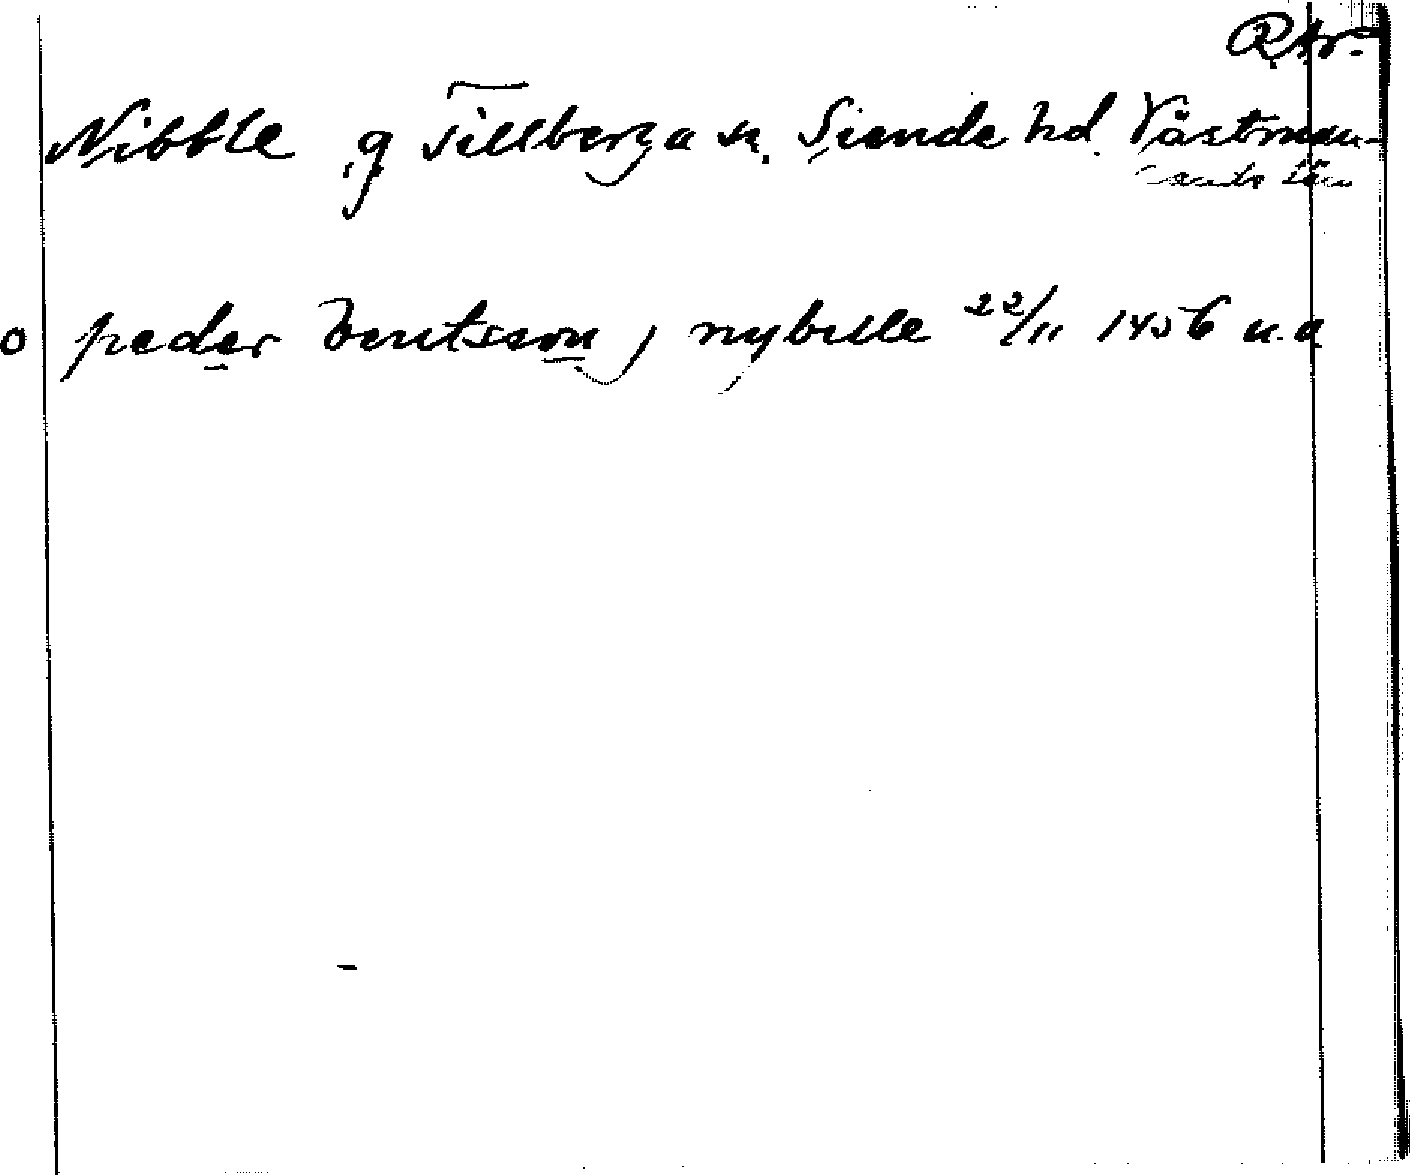 Nibble g Tillberga sn. Siende hd. Västman-
lands län
o peder bentsson j nybelle 22/11 1456 u.a